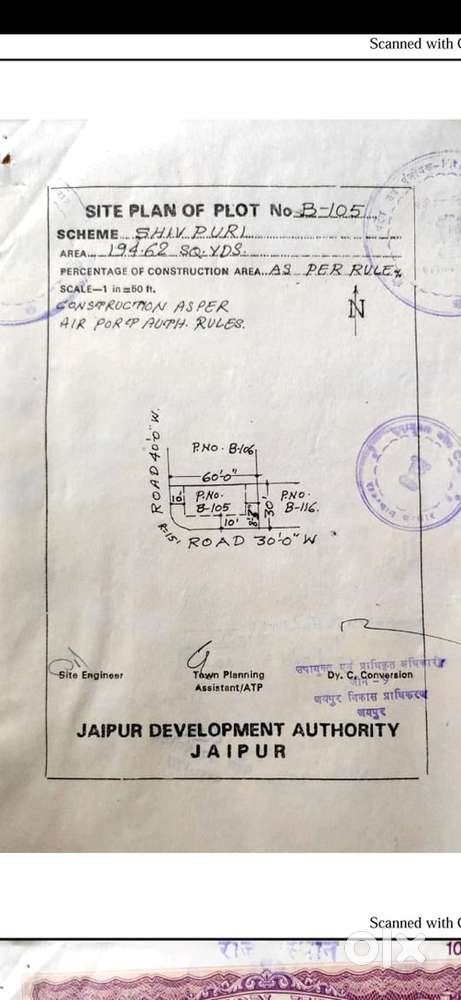 Scanned with C
SITE PLAN OF PLOT No. B-105
SCHEME SHIV PURI
AREA 194.62 SQ.YDS.
PERCENTAGE OF CONSTRUCTION AREA AS PER RULE %
SCALE—1 in = 50 ft.
CONSTRUCTION AS PER
AIR PORT AUTH. RULES.
N
ROAD 40'0" W.
P.NO. B-106
60'0"
10'
P.NO.
B-105
10'
30'
P.NO.
B-116.
R=15'
ROAD 30'0" W
Site Engineer
Town Planning
Assistant/ATP
उपायुक्त एवं प्राधिकृत अधिकारी
Dy. C. Conversion
जोन - 9
जयपुर विकास प्राधिकरण
जयपुर
JAIPUR DEVELOPMENT AUTHORITY
JAIPUR
Scanned with C
olx
10